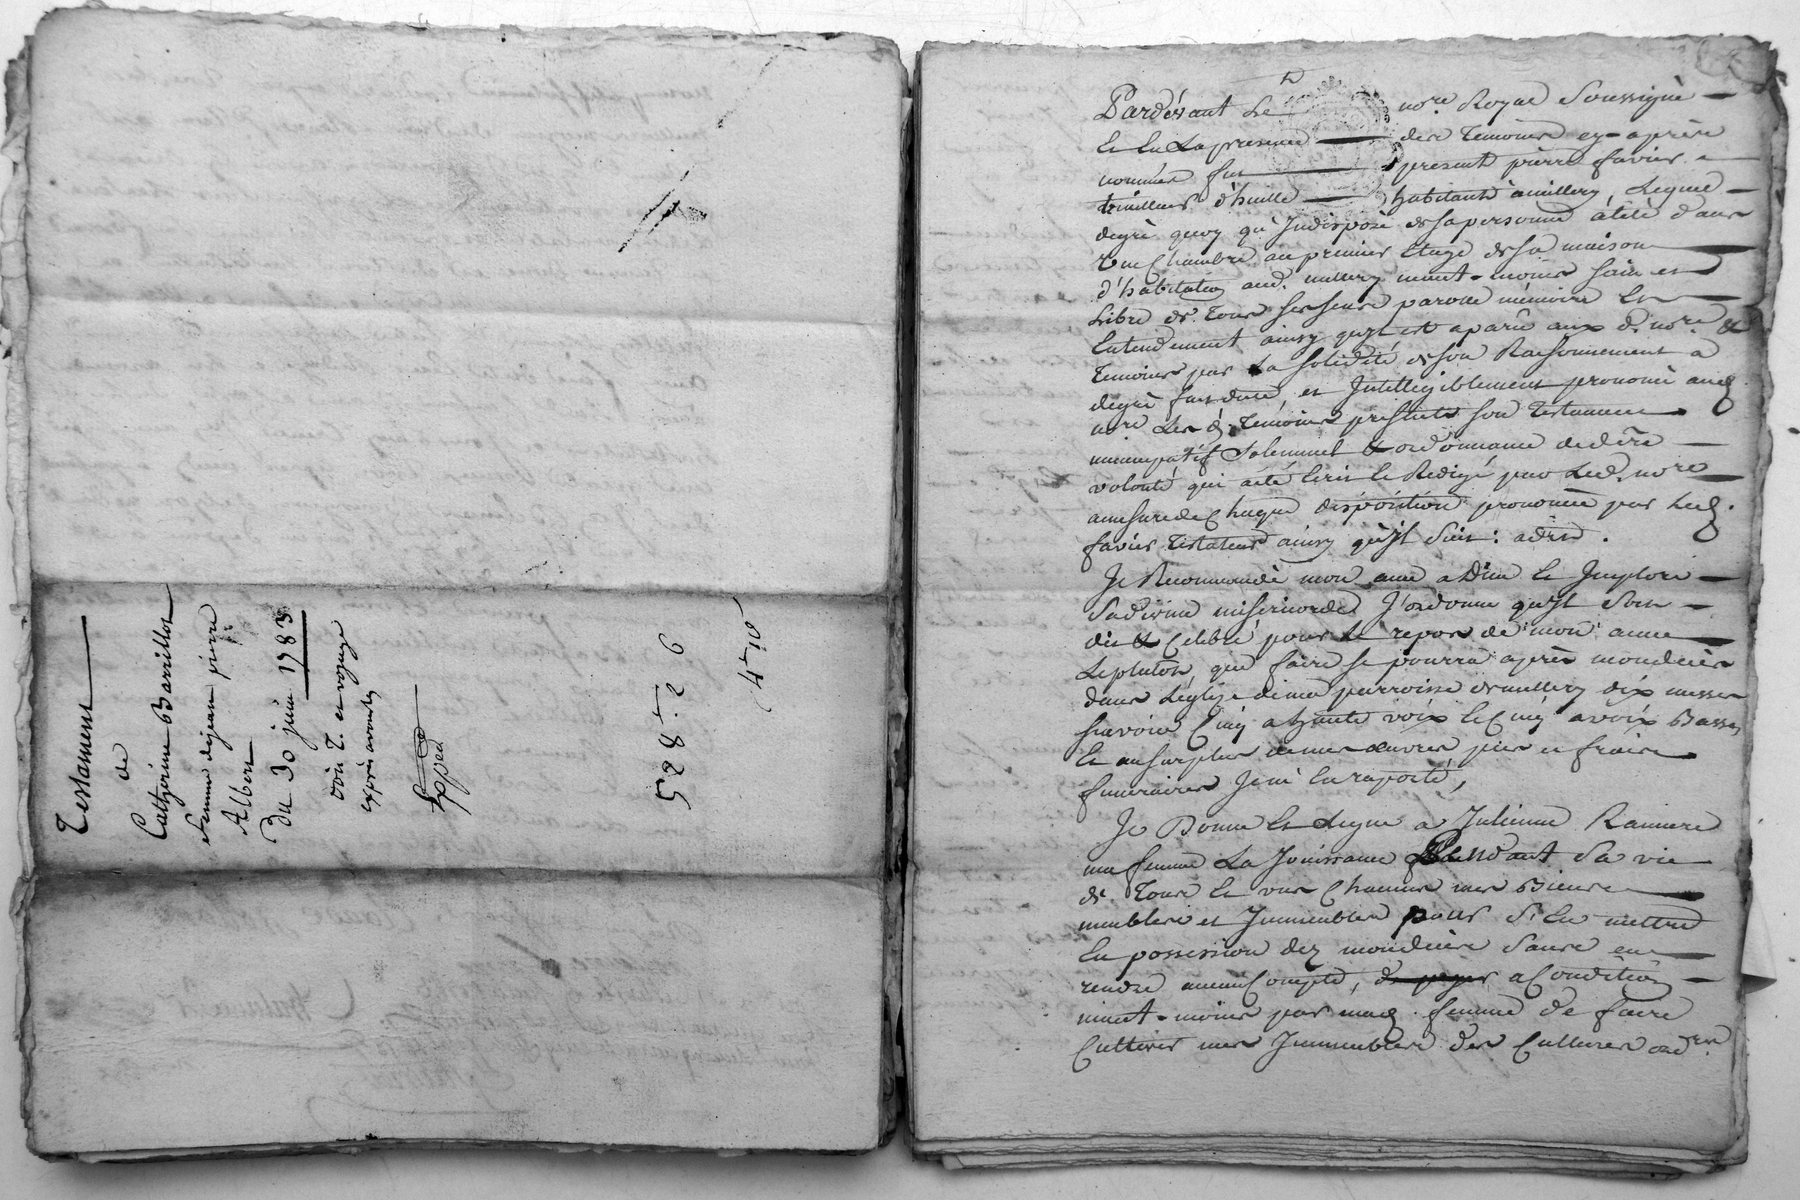 Testament
de
Catherine Barillot
femme dejean pierre
Albert
Du 30 juin 1783
Expped
528 5. 2 6
4 - 10
Pardévant Le nore. Royal Soussigné
Et En La presence des temoins cy-après
nommés fut present pierre favier
huilleur d'huille habitant à millery, Lequel
degré quoy qu'Indisposé de sa personne a été dans
Une Chambre au premier Etage de sa maison
d'habitation aud. millery neant-moins sain et
Libre de tous ses sens parolle mémoire Et
Entendement ainsy qu'il est aparû aux d. nore &
temoins par La solidité de son Raisonnement a
degré fait dicté, et Intelligiblement prononcé aud.
nore Les d. temoins présents son testament
nuncupatif Solemnel & ordonnance de dere
volonté qui a été Ecrit Et Redigé par Led. nore
amesure de Chaque disposition prononcée par Led.
favier testateur ainsy qu'Il Suit: adit.
Je Recommande mon ame a Dieu Et Implore
Sa divine misericorde J'ordonne qu'Il Soit
dit & Celebré pour Le repos de mon ame
Leplutôt que faire se pourra après mon decès
dans L'église de ma parroisse de millery dix messes
sçavoir Cinq a haute voix Et Cinq a voix Basse
Et au surplus de mes œuvres pies et fraix
funeraires Je m'En raporte,
Je Donne Et Legue a Julienne Raniere
ma femme La Jouissance Pendant Sa vie
de tous Et uns Chacuns mes Biens
meubles et Immeubles pour S'En mettre
En possession dez mon decès Sans en
rendre aucun Compte, a Condition
neant-moins par mad. femme de faire
Cultiver mes Immeubles des Cultures ordres